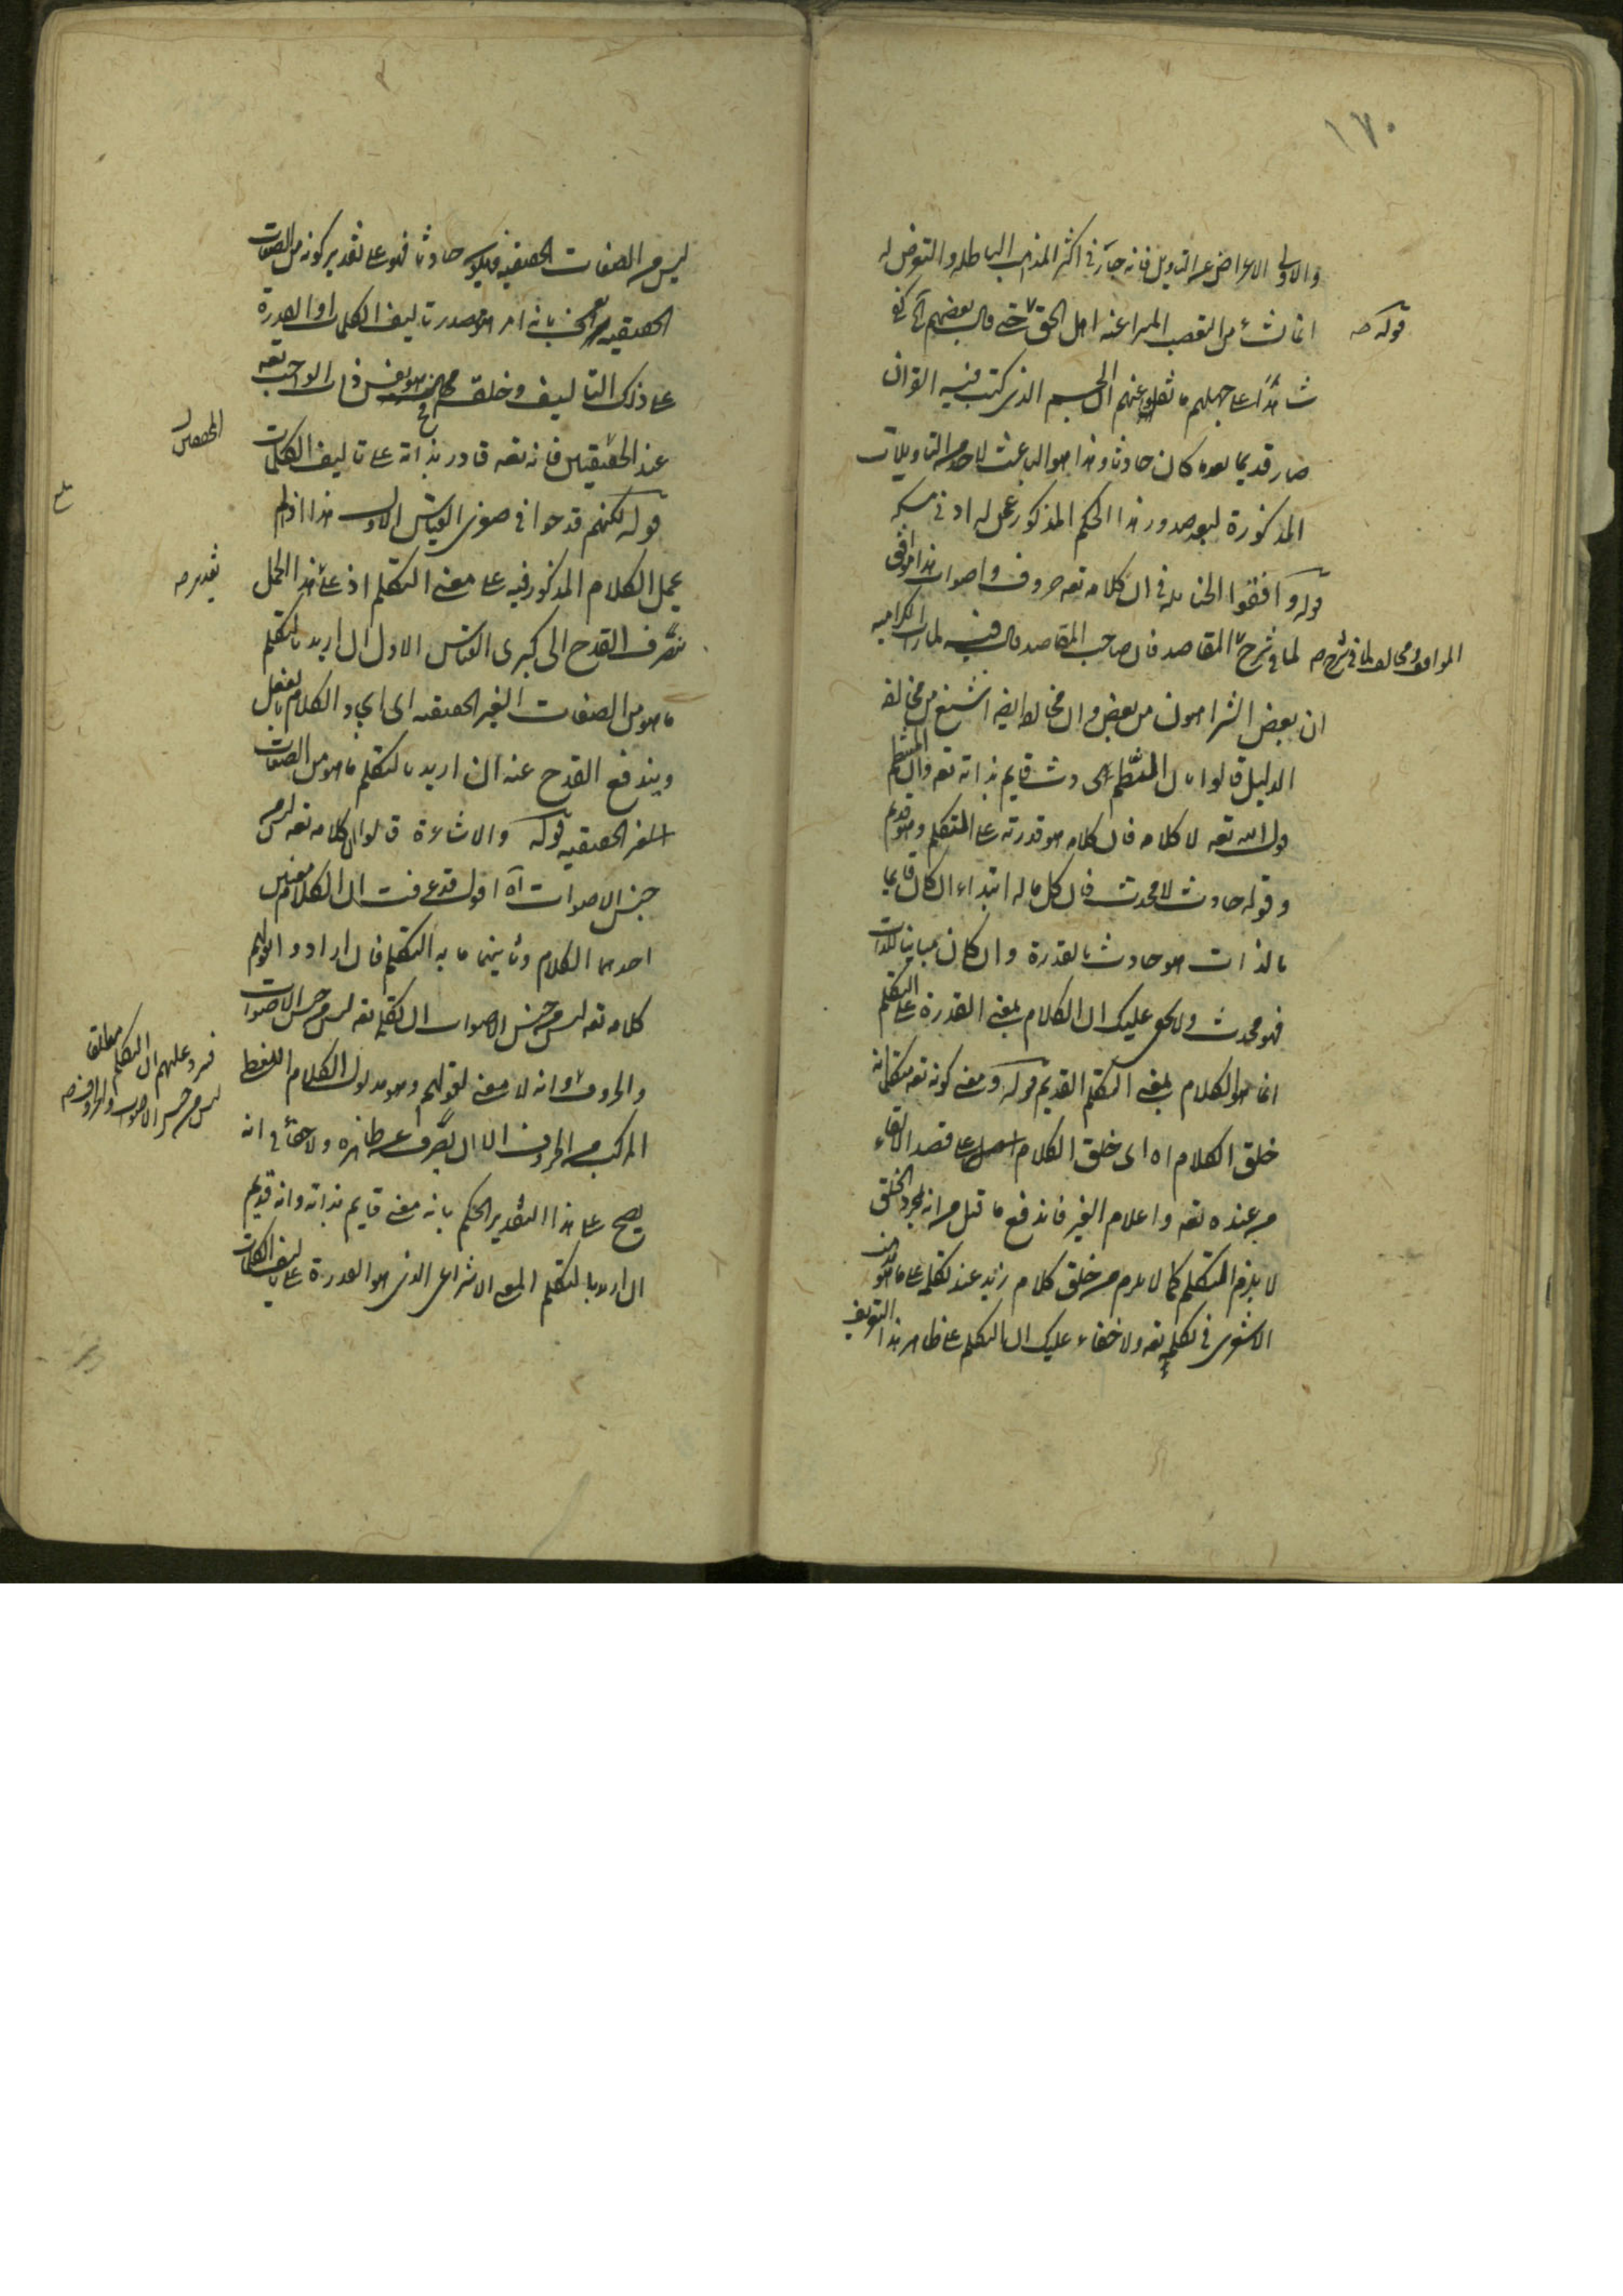 ١٧٠
والاولى الاعراض عن التاويل فانه جاز في اكثر المذاهب الباطلة والتعرض له
انما نشأ من التعصب المبرا عنه اهل الحق قوله حتى قال بعضهم آه كفى
شاهدا على جهلهم ما نقلوا عنهم ان الجسم الذى كتب فيه القرآن
صار قديما بعد ما كان حادثا وهذا هو الباعث لاحد من التاويلات
المذكورة لبعد صدور هذا الحكم المذكور عمن له ادنى مسكة
قوله وافقوا الحنابلة في ان كلامه تعه حروف واصوات هذا موافق
لما في شرح المقاصد فان صاحب المقاصد قال فيه لما رات الكرامية
المواقف ومخالف لما في شرح صح
ان بعض الشر اهون من بعض وان مخالفة الضرورة اشنع من مخالفة
الدليل قالوا بان المنتظم الحادث قايم بذاته تعه وان المنتظم
قول الله تعه لا كلامه فان كلامه هو قدرته على المتكلم وهو قديم
وقوله حادث لا محدث فان كل ما له ابتداء ان كان قايما
بالذات هو حادث بالقدرة وان كان مباينا للذات
فهو محدث ولا يخفى عليك ان الكلام بمعنى القدرة على التكلم
انما هو الكلام بمعنى التكلم القديم قوله ومعنى كونه تعه متكلما انه
خلق الكلام اه اى خلق الكلام على قصد الالقاء
من عنده تعه واعلام الغير فاندفع ما قيل من انه بمجرد الخلق
لا يلزم المتكلم كما لا يلزم من خلق كلام زيد عند تكلمه على ما هو مذهب
الاشعرى في تكلمه تعه ولا خفاء عليك ان التكلم على ظاهر هذا التعريف
ليس من الصفات الحقيقية فيكون حادثا فهو على تقدير كونه من الصفات
الحقيقية بانه امر هو مصدر تاليف الكلمات او القدرة
على ذلك التاليف وخلق هو نفس ذات الواجب تعه
عند المحققين فانه تعه قادر بذاته على تاليف الكلمات
قوله لكنهم قدحوا في صغرى القياس الاول هذا اذا لم
يحمل الكلام المذكور فيه على معنى التكلم اذ على هذا الحمل
ينصرف القدح الى كبرى القياس الاول ان اريد بالتكلم
ما هو من الصفات الغير الحقيقية اى ايجاد الكلام بالفعل
ويندفع القدح عنه ان اريد بالتكلم ما هو من الصفات
الغير الحقيقية قوله والاشاعرة قالوا ان كلامه تعه ليس من
جنس الاصوات آه اقول قد عرفت ان الكلام معنيين
احدهما الكلام وثانيهما ما به التكلم فان ارادوا بقولهم
كلامه تعه ليس من جنس الاصوات ان تكلمه تعه ليس من جنس الاصوات
فيرد عليهم ان التكلم مطلقا
ليس من جنس الاصوات والحروف صح
والحروف وانه لا معنى لقولهم وهو مدلول الكلام اللفظى
المركب من الحروف الا ان يصرف عن ظاهره ولا خفاء في انه
يصح على هذا التقدير الحكم بانه معنى قايم بذاته وانه قديم
ان اريد بالتكلم المعنى الانتزاعى الذى هو القدرة على تاليف الكلمات